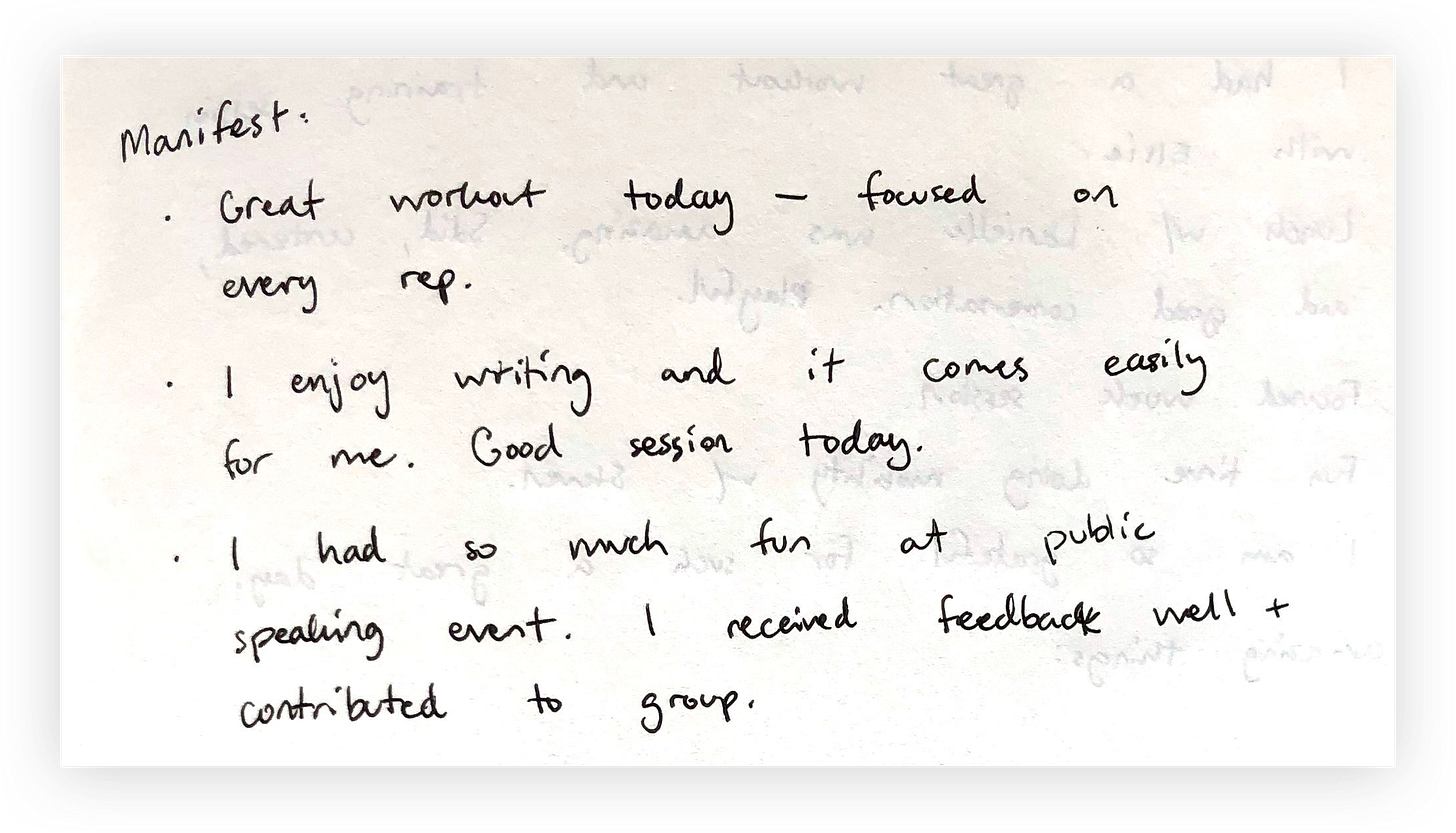 Manifest:
· Great workout today — focused on
every rep.
· I enjoy writing and it comes easily
for me. Good session today.
· I had so much fun at public
speaking event. I received feedback well +
contributed to group.